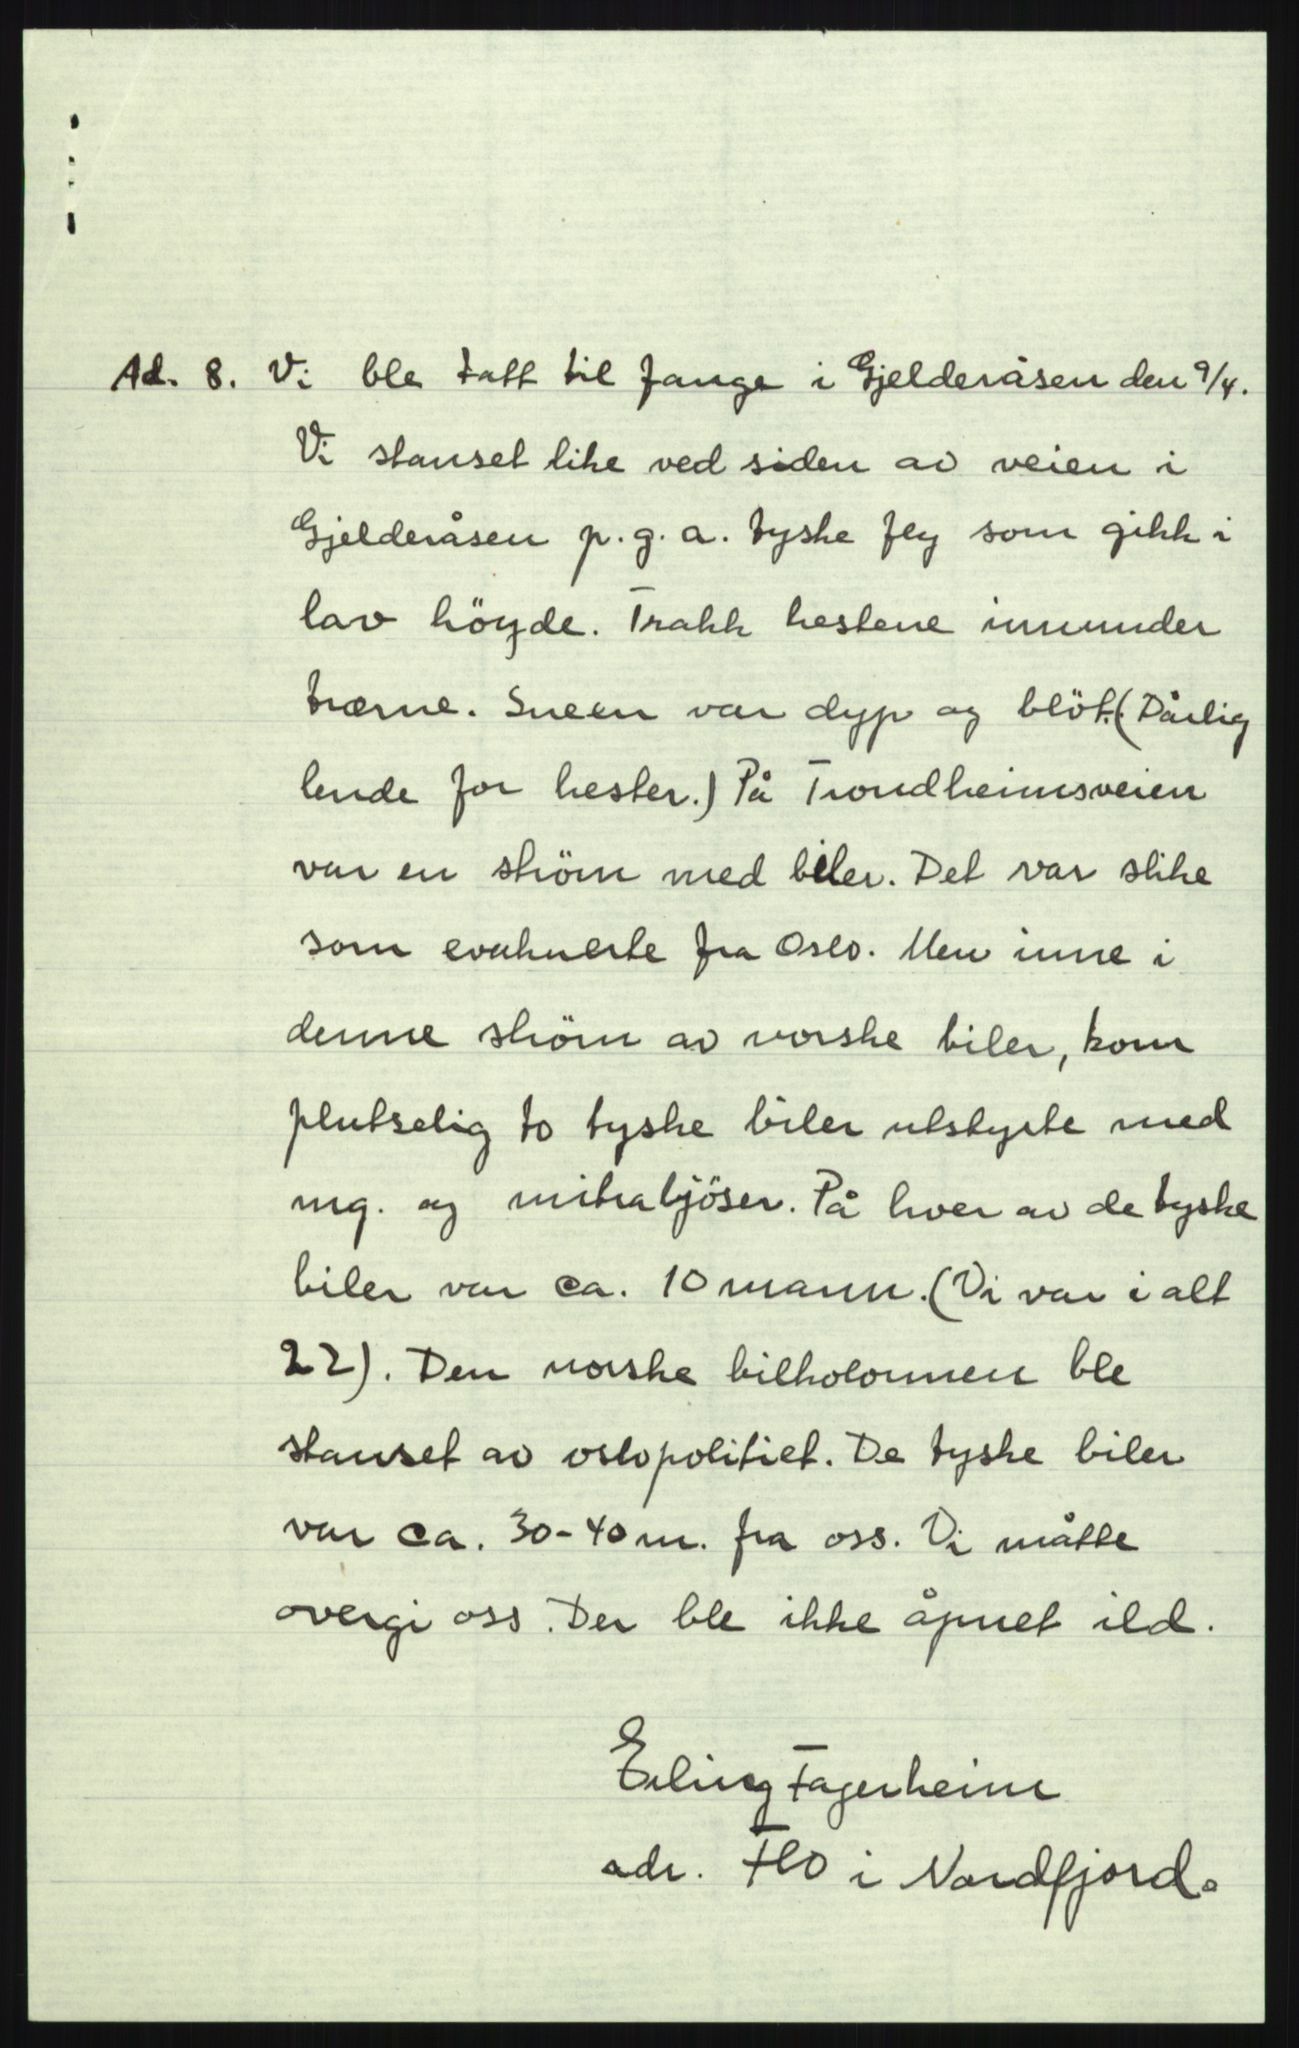 Ad. 8. Vi ble tatt til fange i Gjelderåsen den 9/4.
Vi stanset like ved siden av veien i
Gjelderåsen p.g.a. tyske fly som gikk i
lav höyde. Trakk hestene innunder
trærne. Sneen var dyp og blöt. (Dårlig
lende for hester.) På Trondheimsveien
var en ström med biler. Det var slike
som evakuerte fra Oslo. Men inne i
denne ström av norske biler, kom
plutselig to tyske biler utstyrte med
mg. og mitraljöser. På hver av de tyske
biler var ca. 10 mann. (Vi var i alt
22). Den norske bilkolonnen ble
stanset av oslopolitiet. De tyske biler
var ca. 30-40 m. fra oss. Vi måtte
overgi oss. Der ble ikke åpnet ild.
Erling Fagerheim
adr. Flo i Nordfjord.